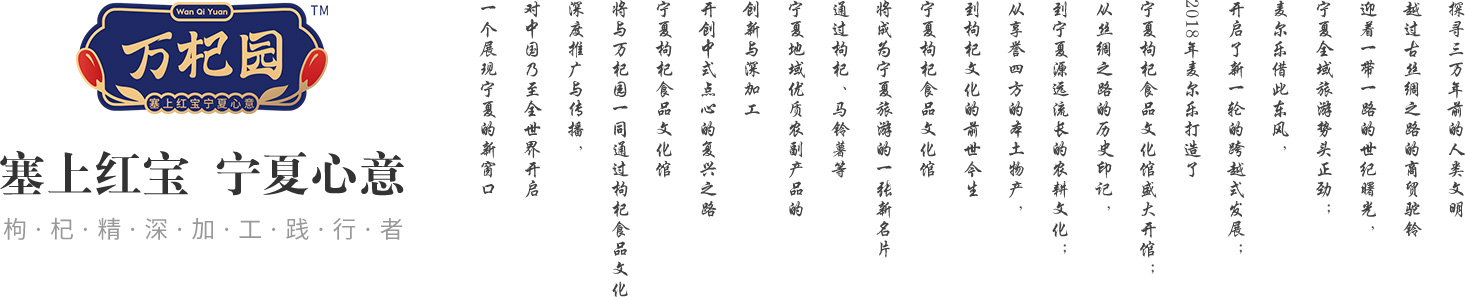 Wan Qi Yuan
TM
万杞园
塞上红宝宁夏心意
塞上红宝 宁夏心意
枸·杞·精·深·加·工·践·行·者
探寻三万年前的人类文明
越过古丝绸之路的商贸驼铃
迎着一带一路的世纪曙光，
宁夏全域旅游势头正劲；
麦尔乐借此东风，
开启了新一轮的跨越式发展；
2018年麦尔乐打造了
宁夏枸杞食品文化馆盛大开馆；
从丝绸之路的历史印记，
到宁夏源远流长的农耕文化；
从享誉四方的本土物产，
到枸杞文化的前世今生
宁夏枸杞食品文化馆
将成为宁夏旅游的一张新名片
通过枸杞、马铃薯等
宁夏地域优质农副产品的
创新与深加工
开创中式点心的复兴之路
宁夏枸杞食品文化馆
将与万杞园一同通过枸杞食品文化
深度推广与传播，
对中国乃至全世界开启
一个展现宁夏的新窗口